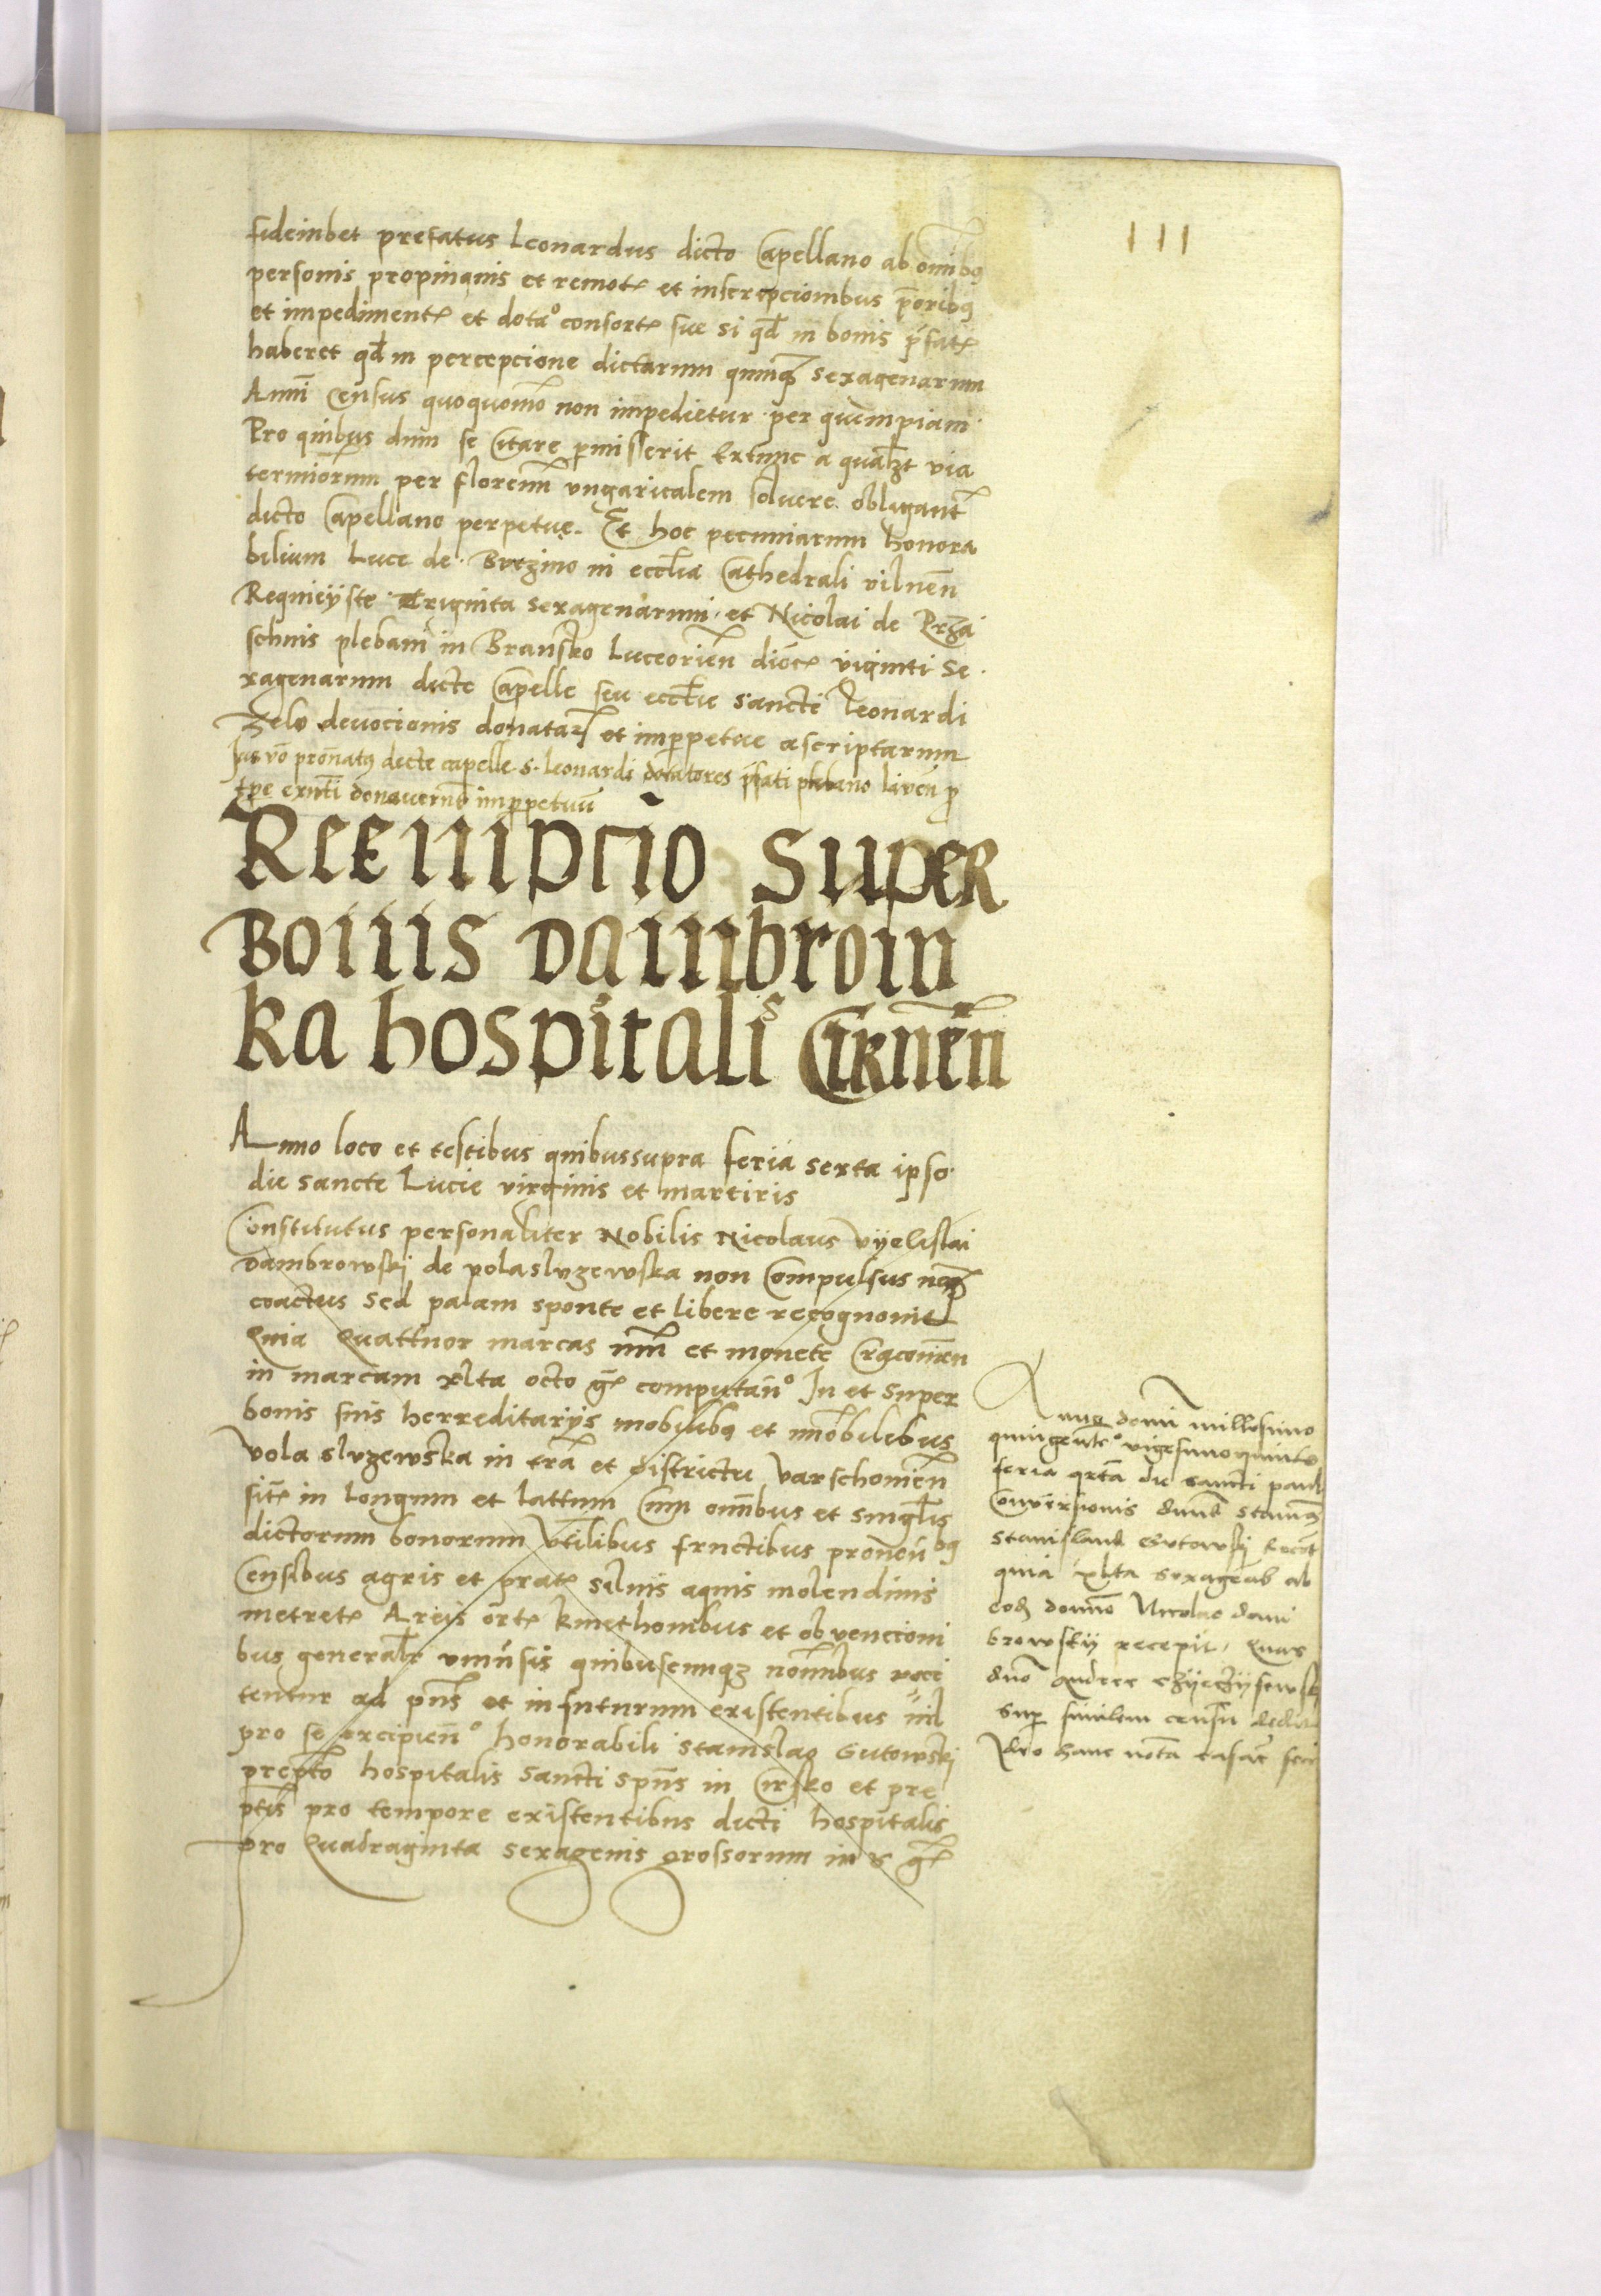 111
fideiubet prefatus Leonardus dicto Capellano ab omībꝰ
personis propinquis et remotꝭ et inscripcionibus p̄oribꝰ
et impedimentꝭ et dotaº consortꝭ sue si qd̄ in bonis p̄fatꝭ
haberet qd̄ in percepcione dictarum quinqꝫ sexagenarum
Annī Census quoquomō non impedietur per quempiam
Pro quibus dum se Citare p̱misserit Extunc a qualꝫt via
terminorum per florenū vngaricalem soluere obligantꝭ
dicto Capellano perpetue. Et hoc pecuniarum honora
bilium Luce de Brzzino in eccl̄ia Cathedrali vilnēn
Requieÿste triginta sexagenarum et Nicolai de Przā
schnis plebani in Bransko Luceoriēn diōcꝭ viginti se
xagenarum dicte Capelle seu eccl̄ie Sancti Leonardi
Zelo deuocionis donataꝝ et imp̱petue ascriptarum
Jus vō pron̄atꝰ dicte capelle S. Leonardi dotatores p̄fati plebano Livēn p̱
tp̄e exn̄ti donauerūt imp̱petuū
Reempcio super
Bonis dambrowi
ka hospitali Cirnēn
Anno loco et testibus quibussupra feria sexta ipso
die sancte Lucie virginis et martiris
Constitutus personaliter Nobilis Nicolaus Vÿelislai
Dambrowskj de volaslvzewska non Compulsus neqꝫ
coactus Sed palam sponte et libere recognouit
Quia Quattuor marcas nūm et monete Cracouīen
in marcam xlta octo gꝭ computan̄º In et Super
bonis suis herreditarÿs mobilibꝰ et īmobilibus
Vola slvzewska in tr̄a et districtu Varschouiēn
sitꝭ in Longum et Lattum Cum omībus et singl̄is
dictorum bonorum vtilibus fructibus prouen̄bꝰ
Censibus agris et pratꝭ Siluis aquis molendinis
metretꝭ Areis ortꝭ kmethonibus et obvencioni
bus generalr̄ vniu̇sis quibuscumqꝫ nomībus voci
tentur ad pn̄s et infuturum existentibus nil
pro se excipien̄º honorabili Stanislao Gutowskj
prepto hospitalis Sancti spn̄s in Cirsko et pre
ptis pro tempore existentibus dicti hospitalis
pro Quadraginta Sexagenis grossorum in s gꝭ
Anno domī millesimo
quingenteº vigesimoquinto
feria qrta die sancti pauli
Conuersionis dn̄us
Stanislaus Gutowskj
quia xlta sexagenas ab
eodꝫ domno Nicolao dam
browskÿ recepit, Quas
dno Andree
Sup̱ similem censū dedit
Ideo hanc nota casare